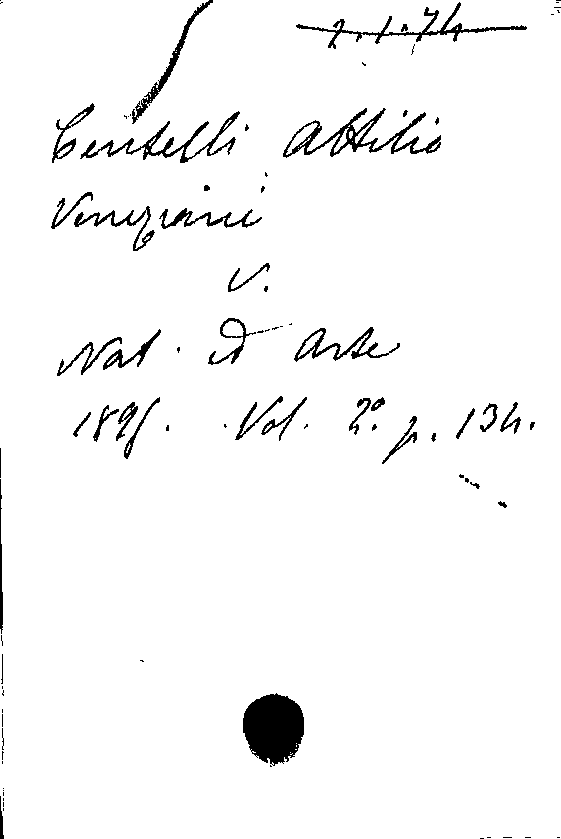 2.1.74
Centelli Attilio
Veneziani
V.
Nat. ed Arte
1895. Vol. 2º p. 134.